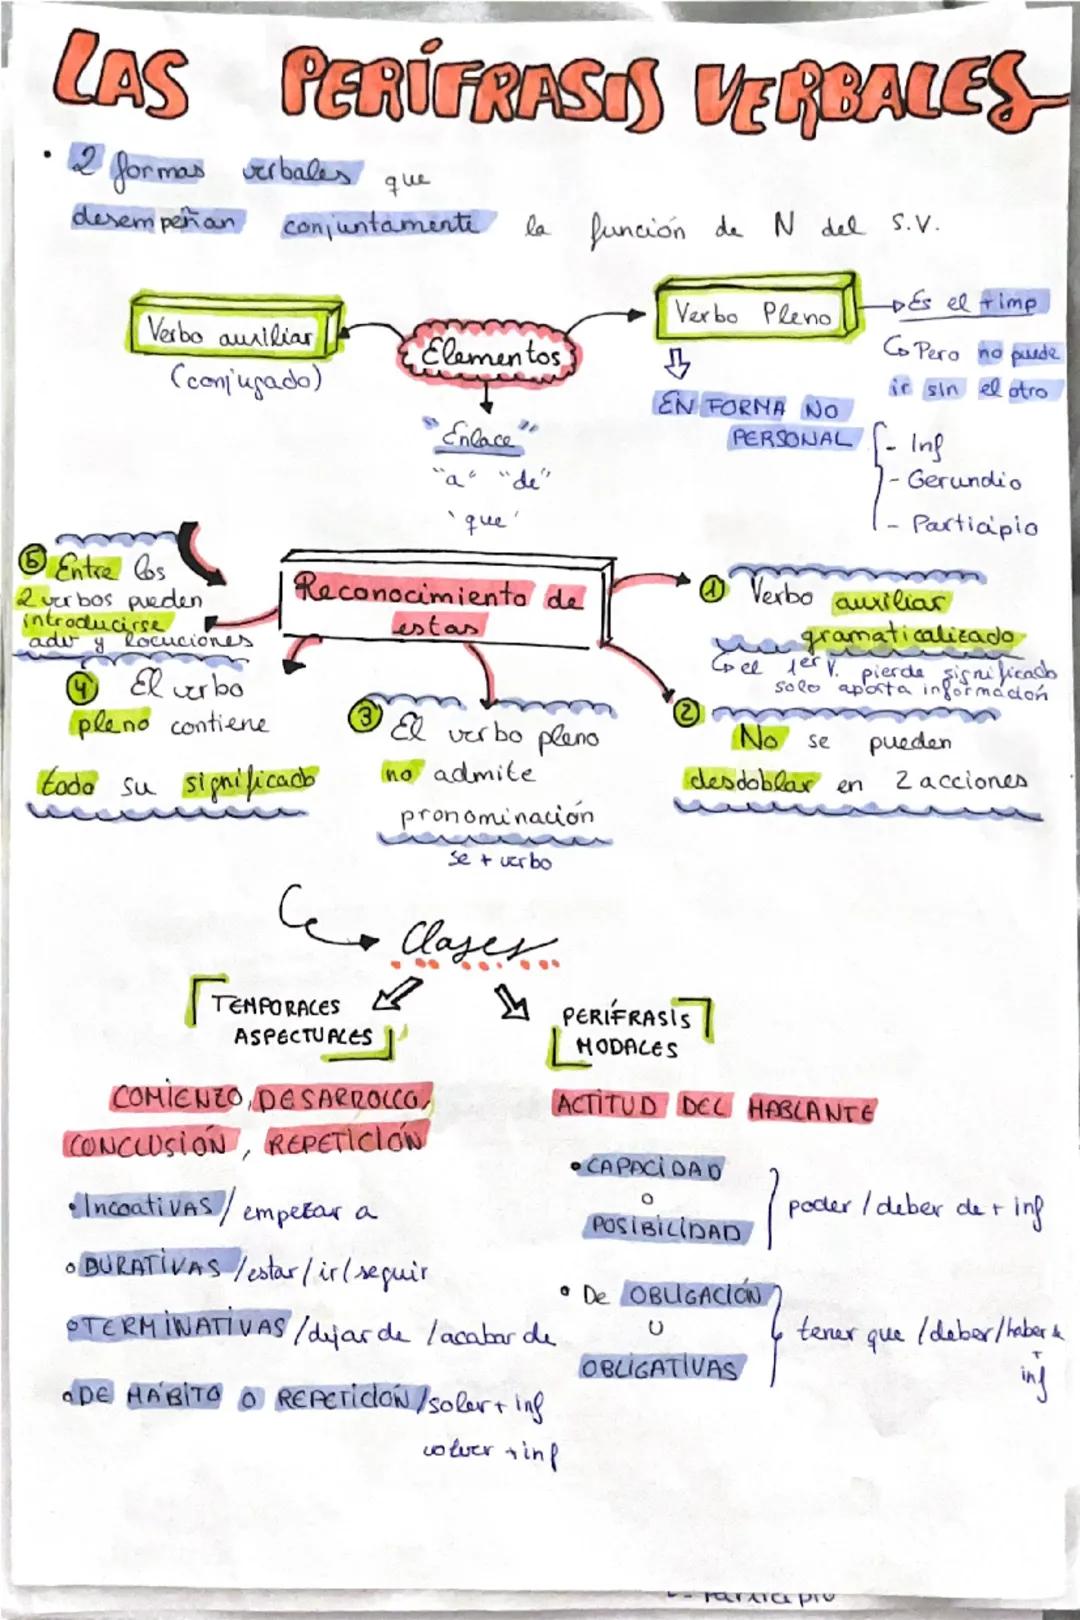 LAS PERÍFRASIS VERBALES
· 2 formas verbales que
desempeñan conjuntamente la función de N del S.V.
Verbo auxiliar
(conjugado)
Elementos
"Enlace"
"a" "de"
'que'
Verbo Pleno
Es el + imp
Pero no puede
ir sin el otro
EN FORMA NO
PERSONAL
- Inf
- Gerundio
- Participio
Reconocimiento de
estas
① Verbo auxiliar
gramaticalizado
el 1er V. pierde significado
solo aporta información
② No se pueden
desdoblar en 2 acciones
③ El verbo pleno
no admite
pronominación
se + verbo
④ El verbo
pleno contiene
todo su significado
⑤ Entre los
2 verbos pueden
introducirse
adv y locuciones
Clases
TEMPORALES
ASPECTUALES
COMIENZO, DESARROLLO,
CONCLUSIÓN, REPETICIÓN
• INCOATIVAS / empezar a
• DURATIVAS / estar / ir / seguir
• TERMINATIVAS / dejar de / acabar de
• DE HÁBITO O REPETICIÓN / soler + inf
volver + inf
PERÍFRASIS
MODALES
ACTITUD DEL HABLANTE
• CAPACIDAD
O
POSIBILIDAD
poder / deber de + inf
• De OBLIGACIÓN
U
OBLIGATIVAS
tener que / deber / haber de
+
inf
- Participio